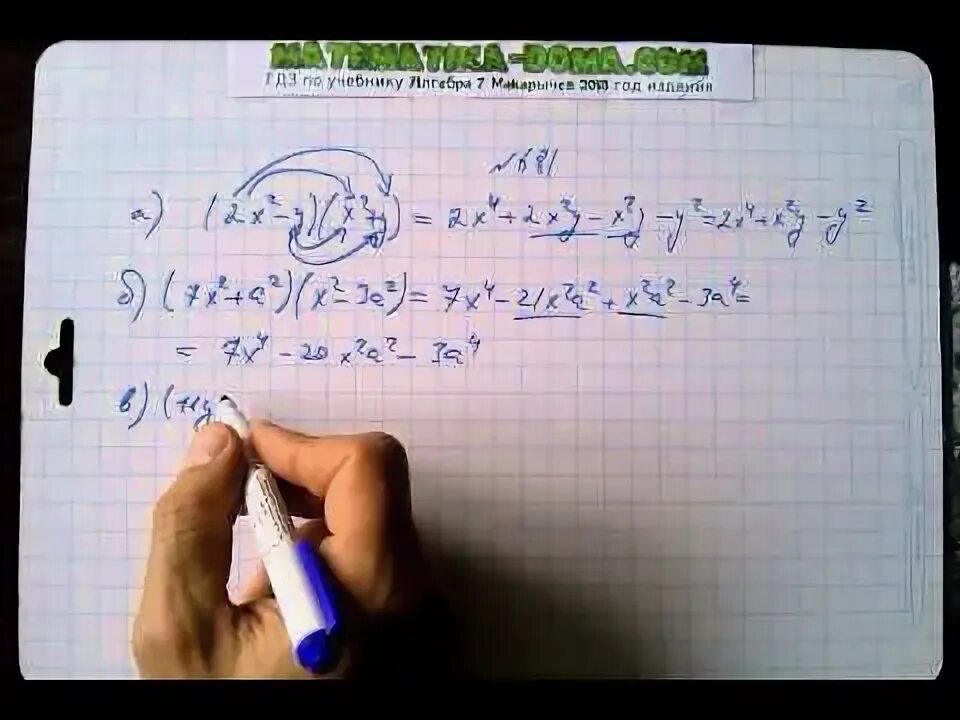 MATEMATIKA-DOMA.COM
ГДЗ по учебнику Алгебра 7 Макарычев 2010 год издания
а) (2x²-y)(x²+y) = 2x⁴+2x²y-x²y-y²=2x⁴+x²y-y²
б) (7x²+a²)(x²-3a²)=7x⁴-21x²a²+x²a²-3a⁴=
= 7x⁴-20x²a²-3a⁴
в) (11y